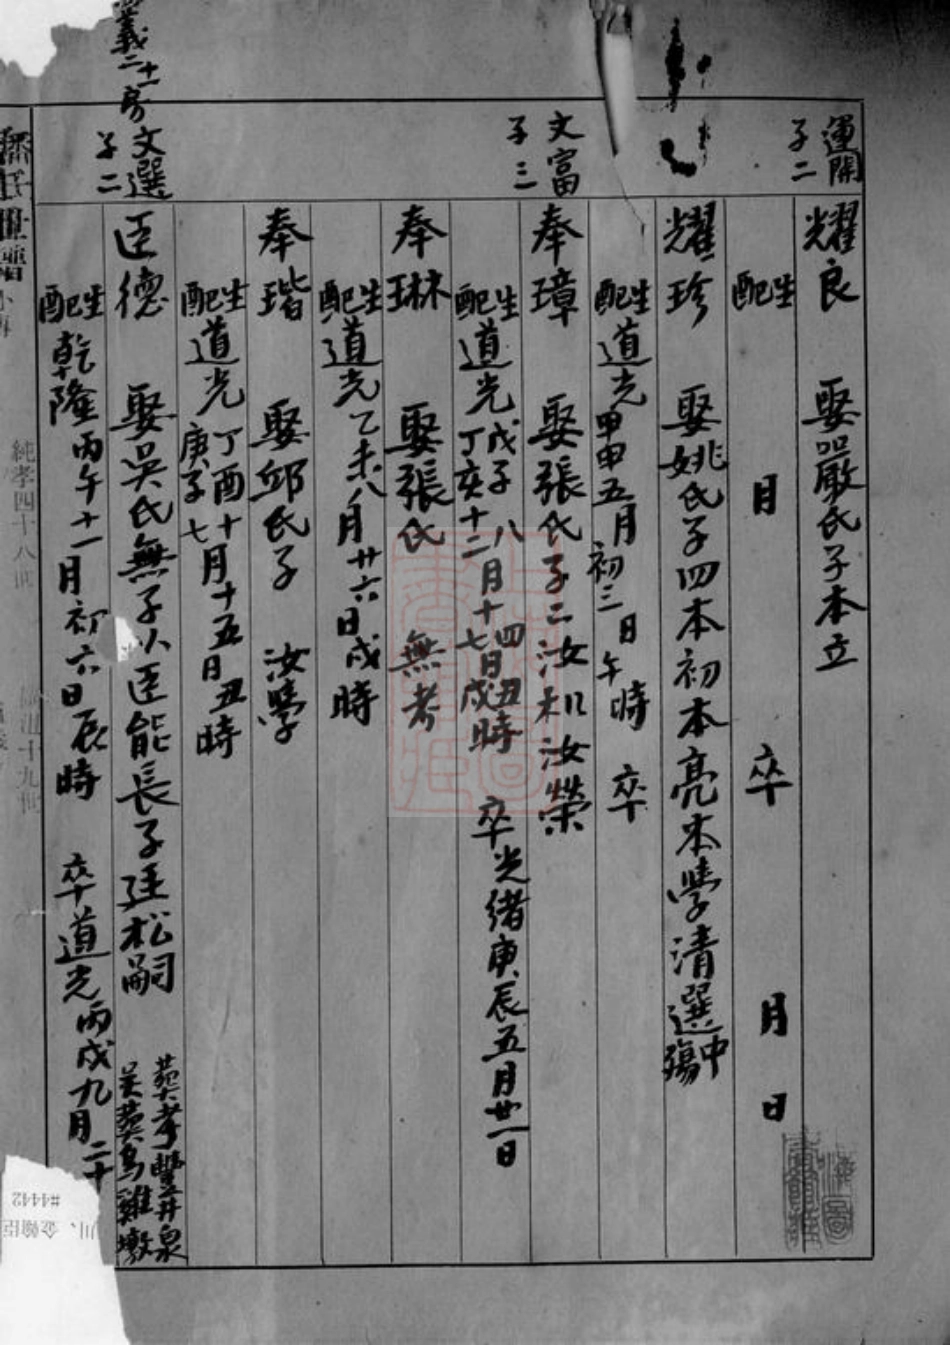 運開
子二
耀良 娶嚴氏子本立
生
配 月 卒 月 日
耀珍 娶姚氏子四本初本亮本學清選中殤
生
配道光甲申五月初三日午時 卒
文富
子三
奉璋 娶張氏子二汝和汝榮
生 戊子八月十四日丑時
配道光丁亥十二月十七日戌時 卒光緒庚辰五月廿一日
奉琳 娶張氏 無考
生
配道光乙未八月廿六日戌時
奉瑎 娶邱氏子 汝學
生 丁酉十月十五日丑時
配道光庚子七
義二十一房
文選
子二
臣德 娶吳氏無子以臣能長子廷松嗣
葬孝豐井泉
吳葬烏雞墩
生
配乾隆丙午十一月初六日辰時 卒道光丙戌九月二十
純孝四十八世
十九世
#4442